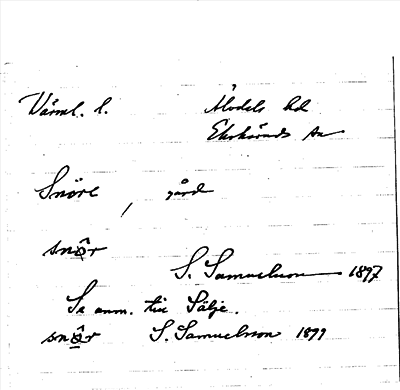 Värml. l.
Älvdals hd
Ekshärads sn
Snörl, gård
snö̂r
S. Samuelsson 1897
Se anm. till Sälje.
snö̂r S. Samuelsson 1899